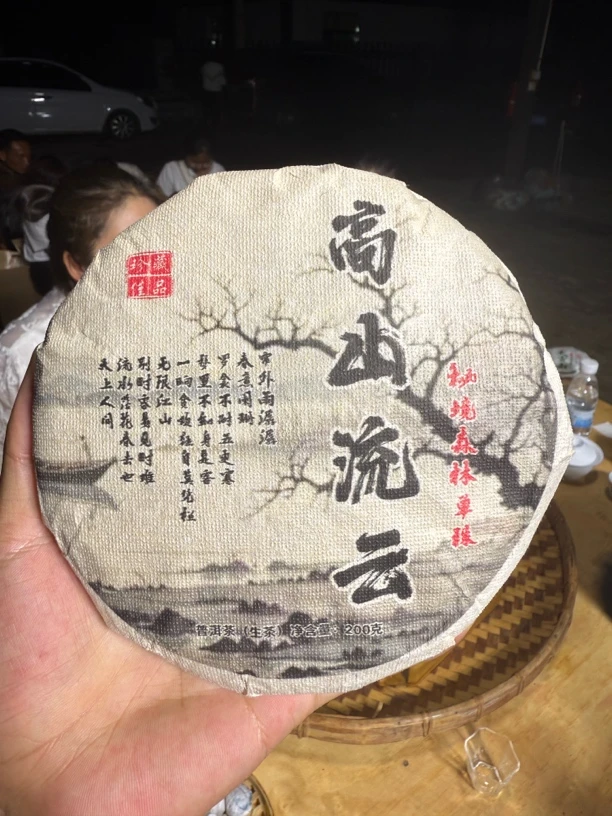 高山流云
秘境森林单珠
珍藏
佳品
帘外雨潺潺
春意阑珊
罗衾不耐五更寒
梦里不知身是客
一晌贪欢独自莫凭栏
无限江山
别时容易见时难
流水落花春去也
天上人间
普洱茶（生茶）净含量：200克